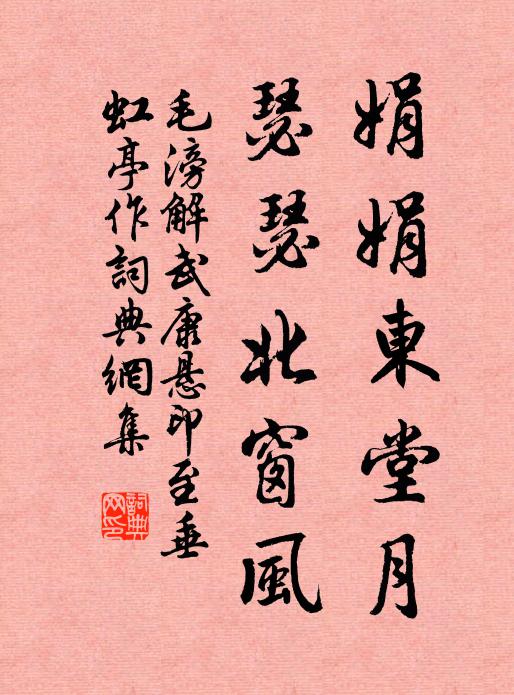 娟娟東堂月
瑟瑟北窗風
毛滂解武康縣印至垂
虹亭作詞典網集
詞典
网印